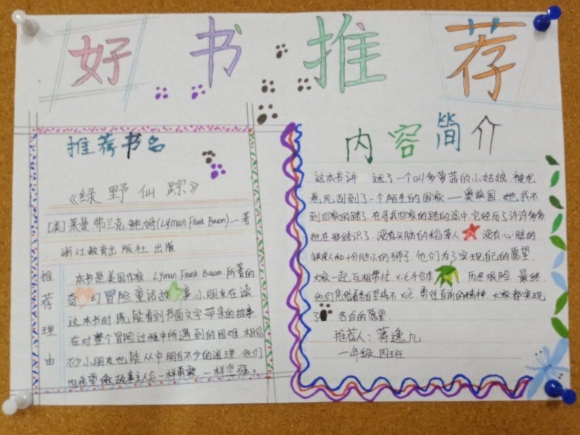 好书推荐
推荐书名
《绿野仙踪》
[美]莱曼·弗兰克·鲍姆(Lyman Frank Baum)—著
浙江教育出版社 出版
推荐理由
本书是美国作家 Lyman Frank Baum 所著的
冒险童话故事,小朋友在读
这本书时,能看到书面文字带来的故事
在对整个冒险过程中所遇到的困难,相信
不少小朋友也能从中明白不少的道理,他们
也希望像故事主人公一样勇敢,一样坚强。
内容简介
这本书讲述了一个叫多萝茜的小姑娘,被龙
卷风刮到了一个陌生的国家——奥兹国,她找不
到回家的路了,在寻找回家的路的途中,它经历了许许多多
他在那结识了没有头脑的稻草人 没有心脏的
铁皮人和十分胆小的狮子,他们为了实现自己的愿望
大家一起互相帮忙 历尽艰险 虽然
的精神,大家都实现
了 各自的愿望
推荐人:
一年级四班